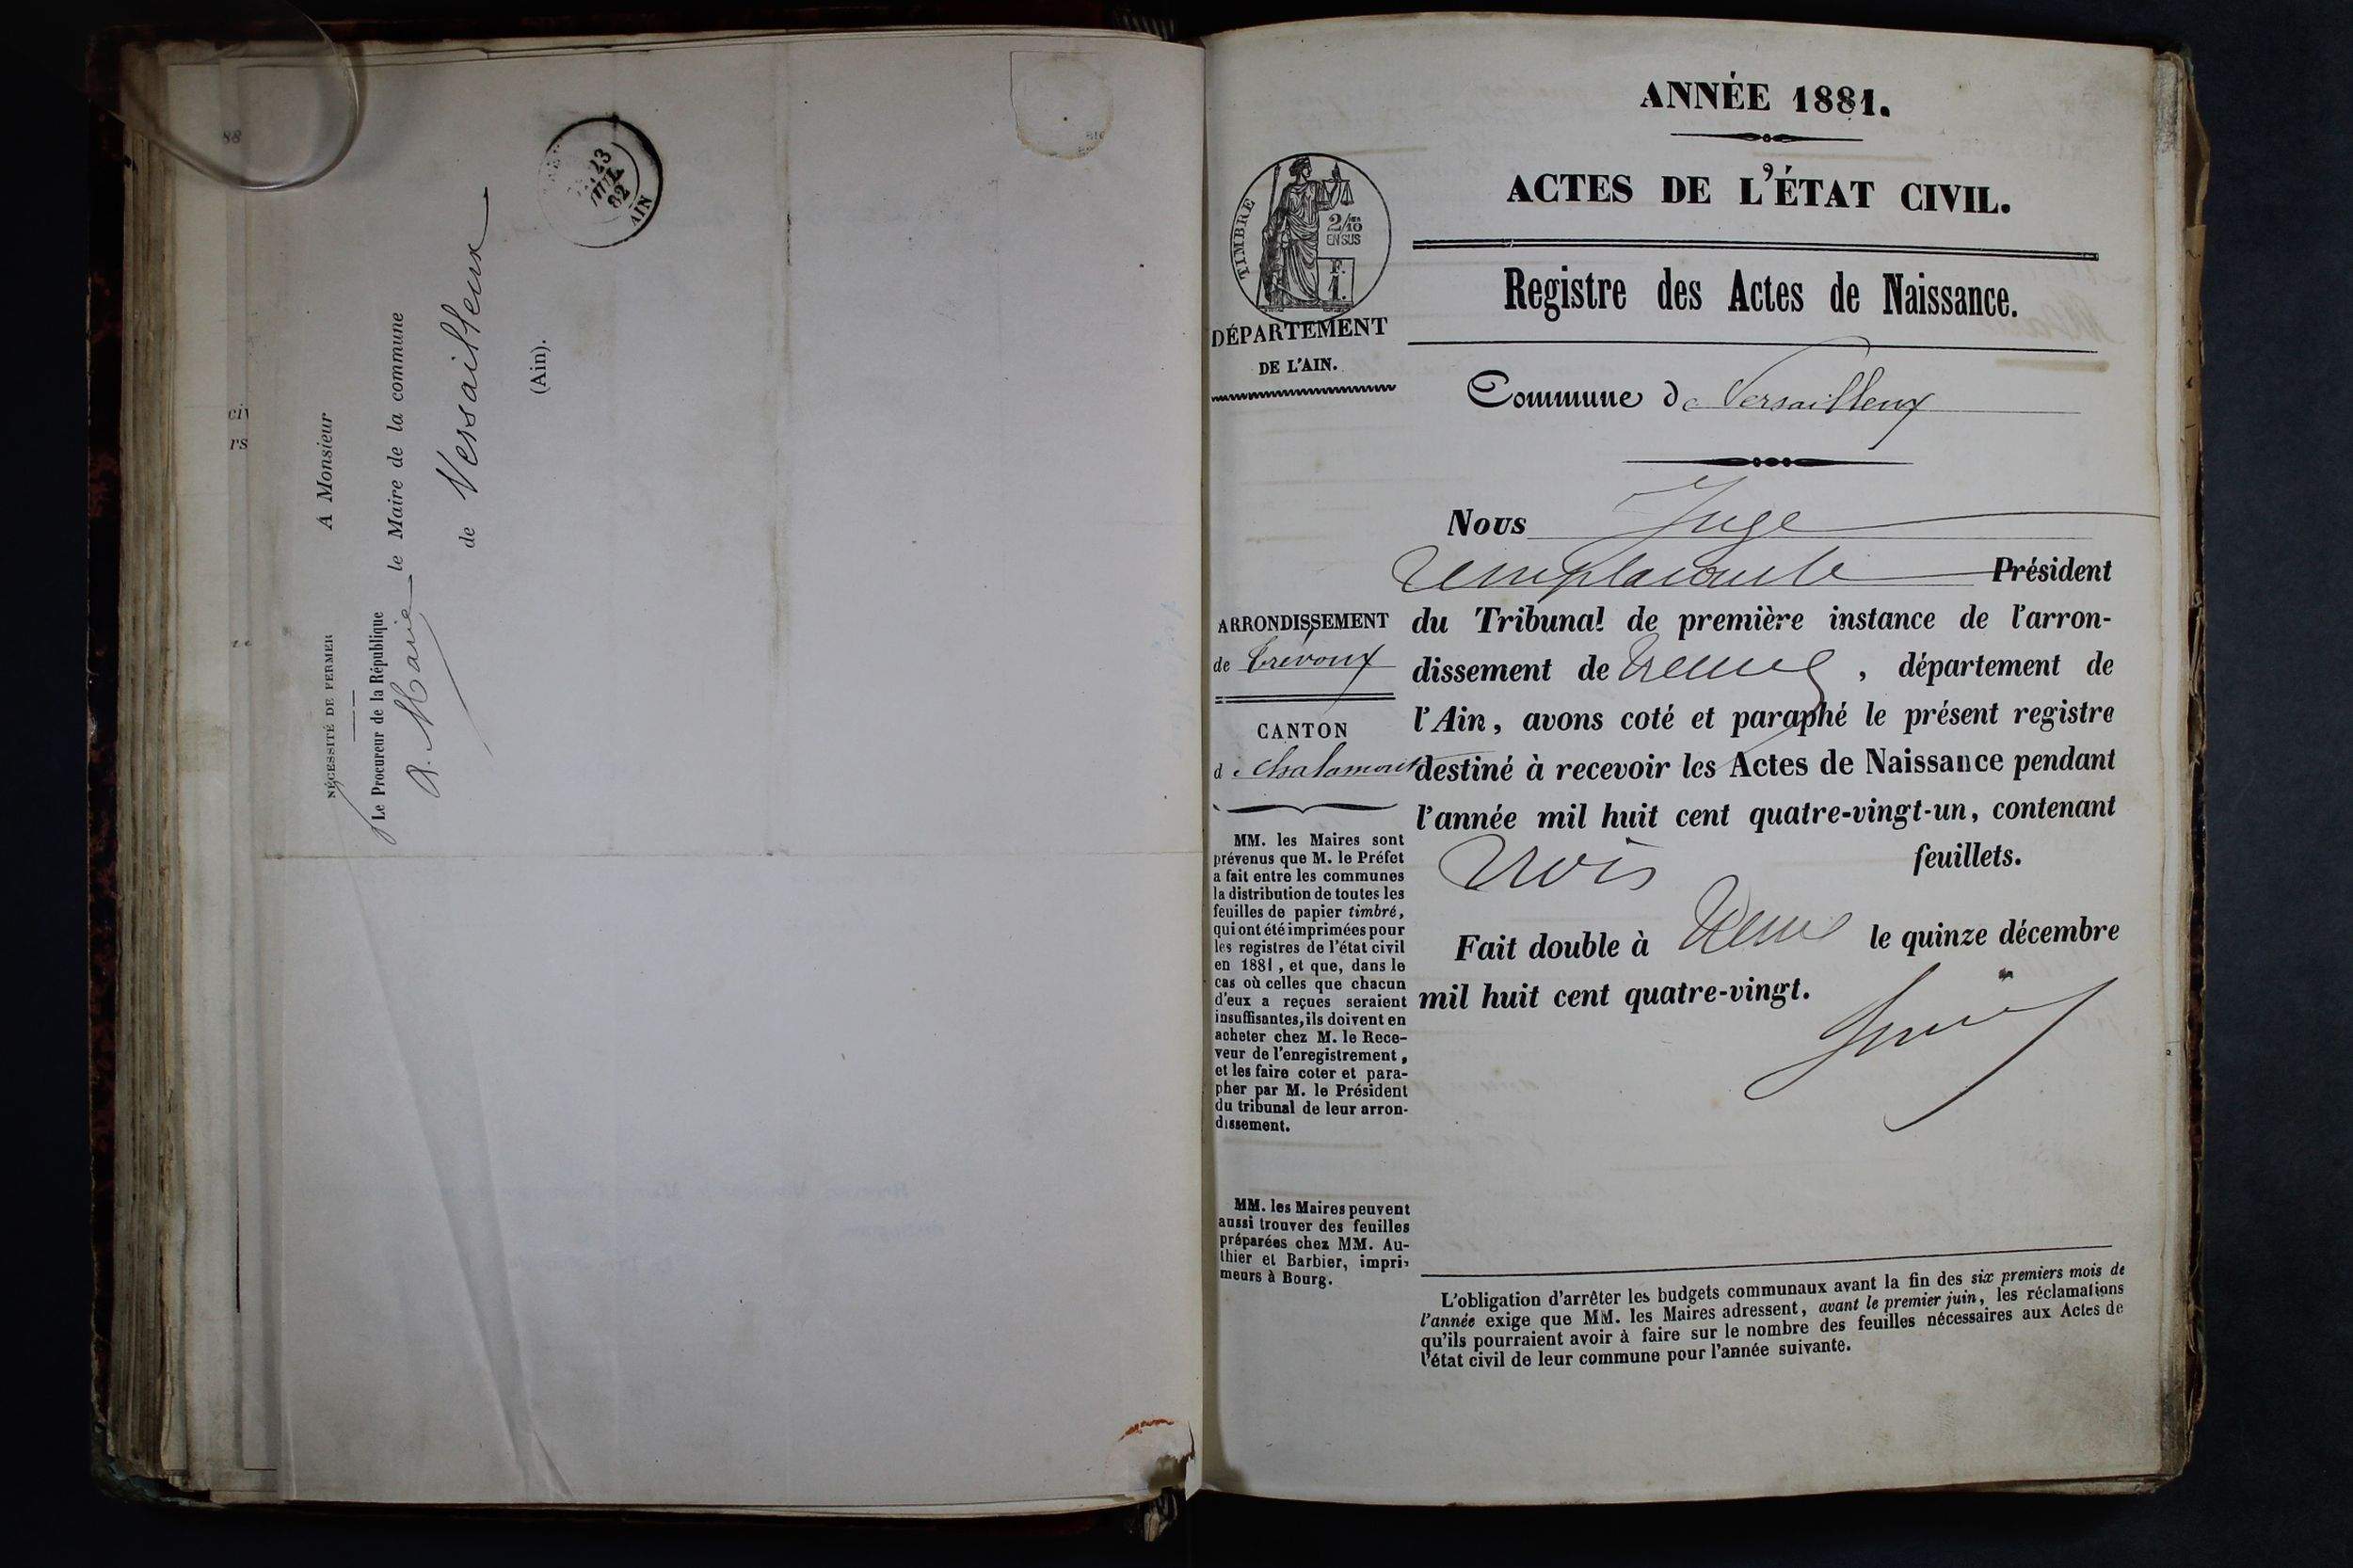 NÉCESSITÉ DE FERMER
Le Procureur de la République
A Monsieur
le Maire de la commune
de Versailleux
(Ain).
13
JUIL
82
AIN
ANNÉE 1881.
ACTES DE L'ÉTAT CIVIL.
Registre des Actes de Naissance.
Commune de Versailleux
TIMBRE
2/10
EN SUS
F.
1.
DÉPARTEMENT
DE L'AIN.
ARRONDISSEMENT
de Trévoux
CANTON
de Chalamont
MM. les Maires sont
prévenus que M. le Préfet
a fait entre les communes
la distribution de toutes les
feuilles de papier timbré,
qui ont été imprimées pour
les registres de l'état civil
en 1881, et que, dans le
cas où celles que chacun
d'eux a reçues seraient
insuffisantes, ils doivent en
acheter chez M. le Rece-
veur de l'enregistrement,
et les faire coter et para-
pher par M. le Président
du tribunal de leur arron-
dissement.
MM. les Maires peuvent
aussi trouver des feuilles
préparées chez MM. Au-
thier et Barbier, impri-
meurs à Bourg.
Nous Juge
Président
du Tribunal de première instance de l'arron-
dissement de Trévoux, département de
l'Ain, avons coté et paraphé le présent registre
destiné à recevoir les Actes de Naissance pendant
l'année mil huit cent quatre-vingt-un, contenant
trois feuillets.
Fait double à Trévoux le quinze décembre
mil huit cent quatre-vingt.
L'obligation d'arrêter les budgets communaux avant la fin des six premiers mois de
l'année exige que MM. les Maires adressent, avant le premier juin, les réclamations
qu'ils pourraient avoir à faire sur le nombre des feuilles nécessaires aux Actes de
l'état civil de leur commune pour l'année suivante.